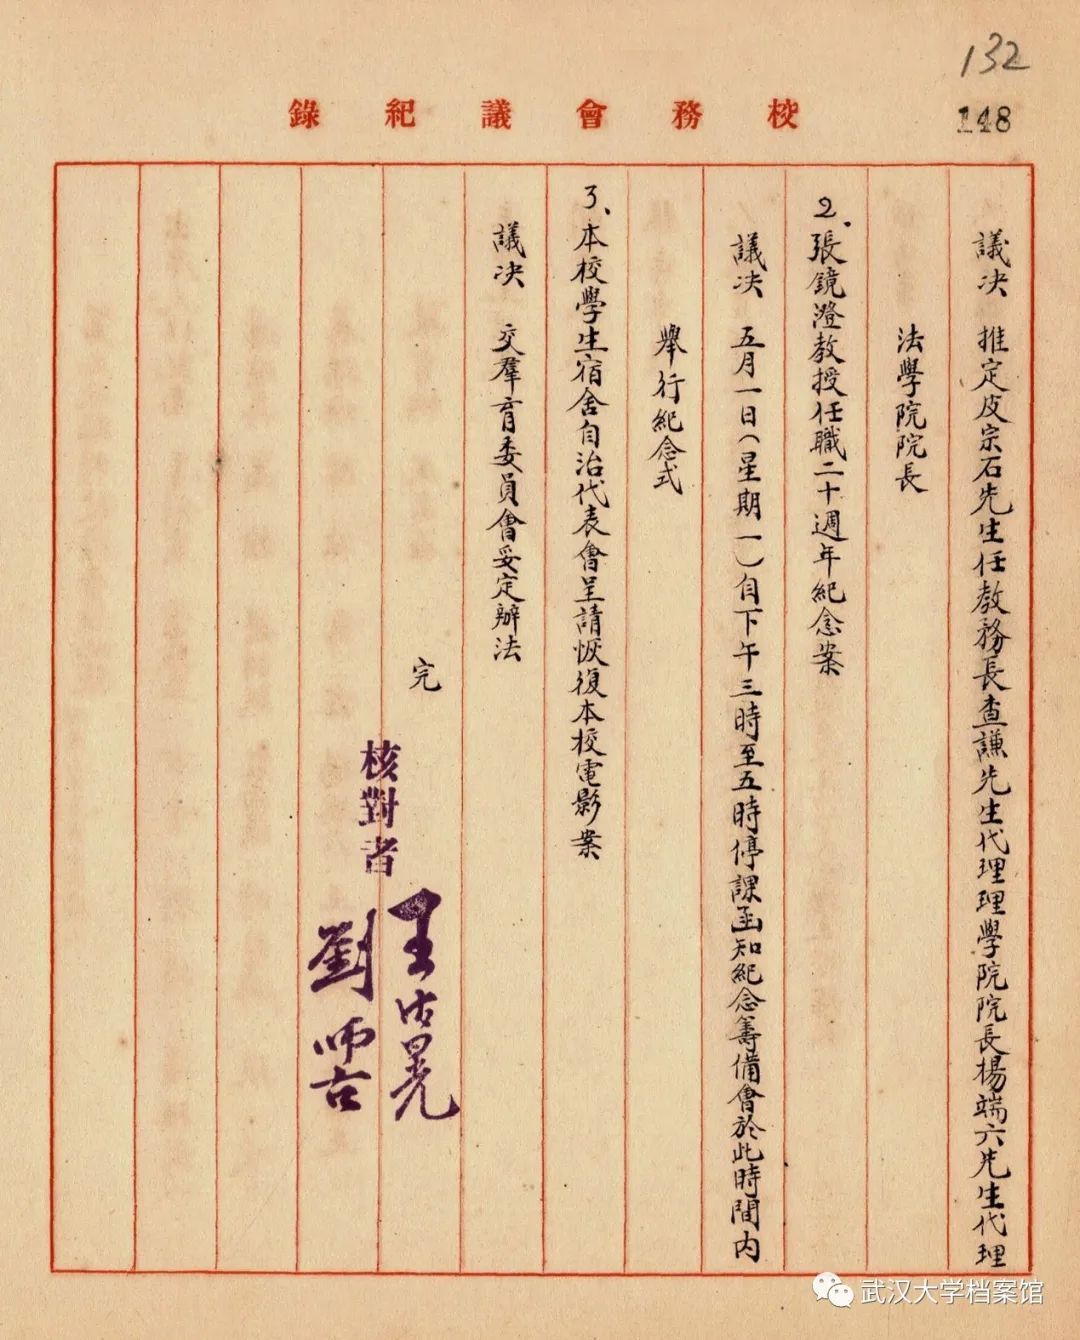 132
148
校務會議紀錄
議决　推定皮宗石先生任教務長查謙先生代理理學院院長楊端六先生代理
法學院院長
2、張鏡澄教授任職二十週年紀念案
議决　五月一日(星期一)自下午三時至五時停課函知紀念籌備會於此時間内
舉行紀念式
3、本校學生宿舍自治代表會呈請恢復本校電影案
議决　交羣育委員會妥定辦法
完
核對者
劉師古
武汉大学档案馆